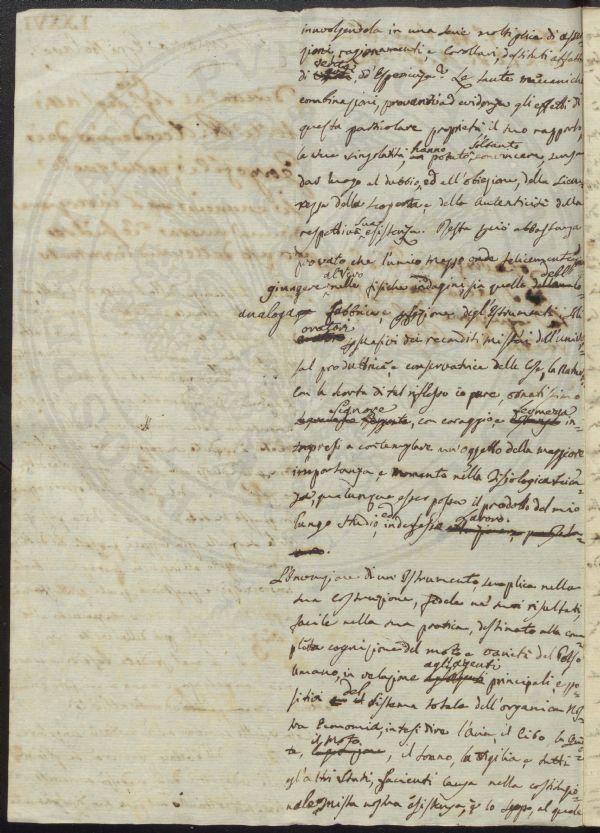 involgendola in una serie moltiplice di asser-
zioni, ragionamenti, e Corollarj, destituti affatto
di verità ed Esperienza. Le tante mecaniche
combinazioni, proventi ad evidenza gli effetti di
questa particolare proprietà il suo rapporto,
la sua singolarità, hanno potuto soltanto convincere, senza
dar luogo al dubbio, ed all'obiezione, della Sicu-
rezza della scoperta, e della Autenticità della
respettiva sua esistenza. Resta perciò abbastanza
provato che l'unico mezzo onde felicemente
giungere al vero nelle fisiche indagini, sia quello della
analoga fabbrica, e
degl'Istrumenti
oratori
dei reconditi misteri dell'univer-
sal produttrice, e conservatrice delle Cose, la Natura.
Con la scorta di tal riflesso io pure, ornatissimo
Signore, con coraggio, e fermezza in-
trapresi a contemplare un'oggetto della maggiore
importanza, e momento nella Fisiologica Scien-
za, qualunque esser possa il prodotto del mio
lungo studio, ed indefesso Lavoro.
L'Invenzione di un'Istrumento, semplice nella
sua Costruzione, fedele ne' suoi risultati,
facile nella sua pratica, destinato alla com-
pleta cognizione del moto, e varietà del Polso
Umano, in relazione agli agenti principali, e po-
sitivi del sistema totale dell'organica No-
stra Economia, intesi dire l'aria, il Cibo, la Quie-
te, il moto, il sonno, la Vigilia, e tutti
gl'altri stati, facienti causa nella costituzio-
nale, mista nostra esistenza, è lo scopo, al quale